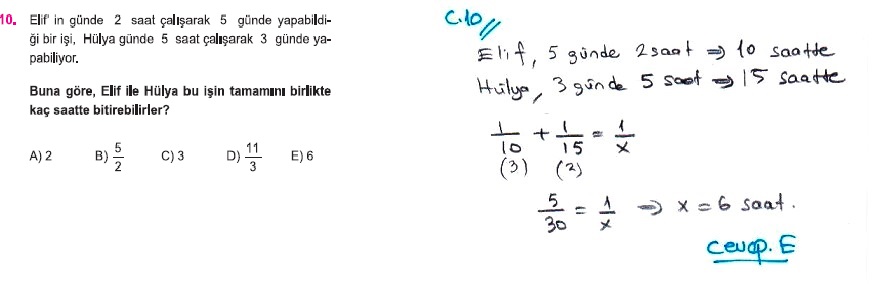 10. Elif' in günde 2 saat çalışarak 5 günde yapabildi-
ği bir işi, Hülya günde 5 saat çalışarak 3 günde ya-
pabiliyor.
Buna göre, Elif ile Hülya bu işin tamamını birlikte
kaç saatte bitirebilirler?
A) 2 B) 5/2 C) 3 D) 11/3 E) 6
C.10
Elif, 5 günde 2 saat ⇒ 10 saatte
Hülya, 3 günde 5 saat ⇒ 15 saatte
1/10 + 1/15 = 1/x
(3) (2)
5/30 = 1/x ⇒ x = 6 saat.
Cevap. E